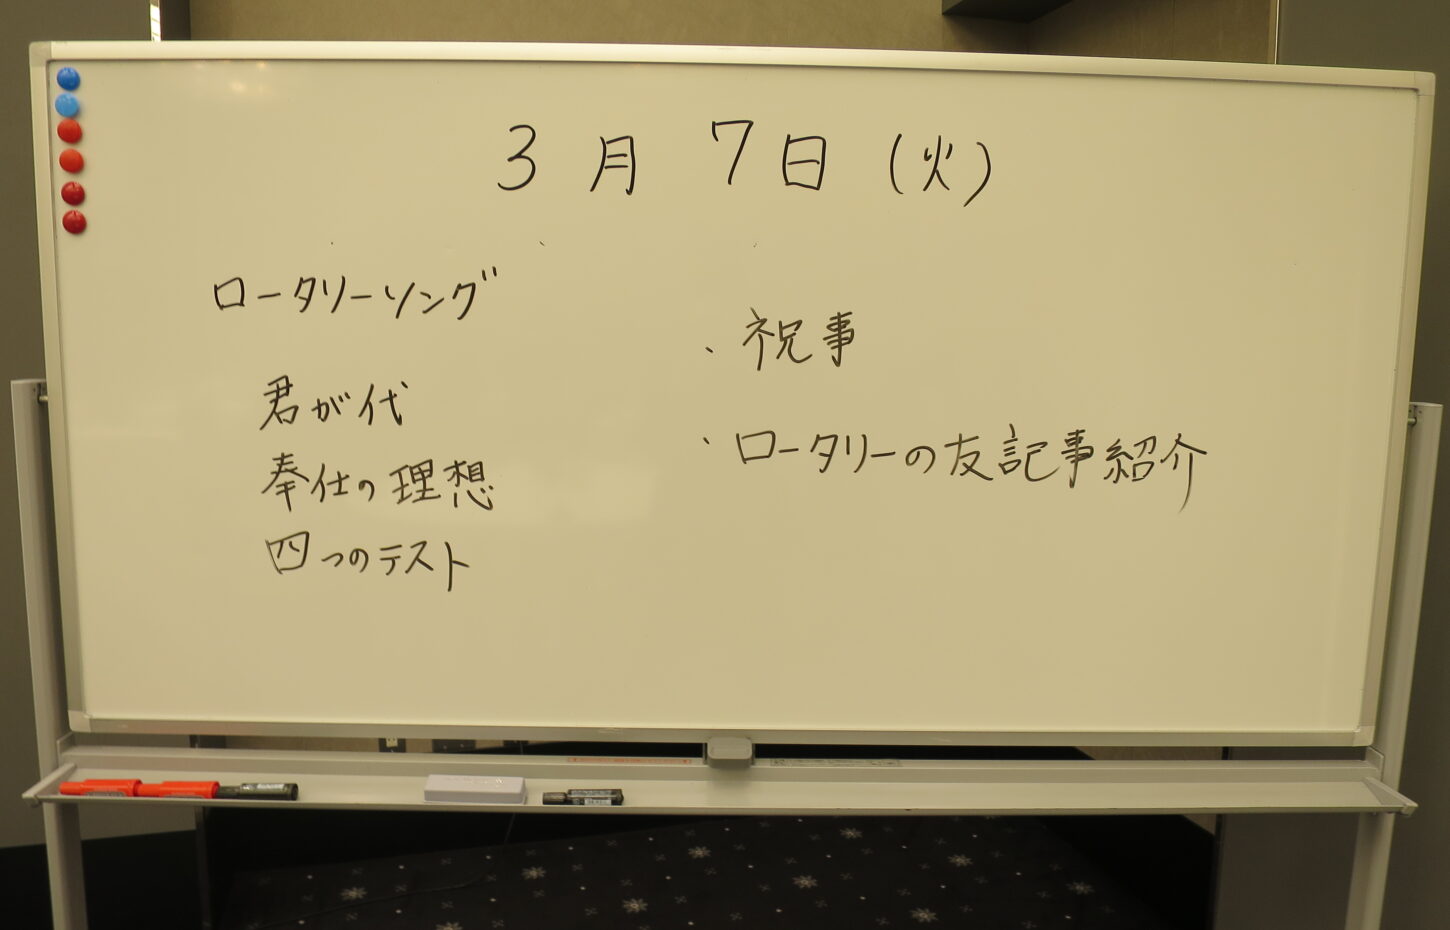 3月7日(火)
ロータリーソング
君が代
奉仕の理想
四つのテスト
、祝事
、ロータリーの友記事紹介